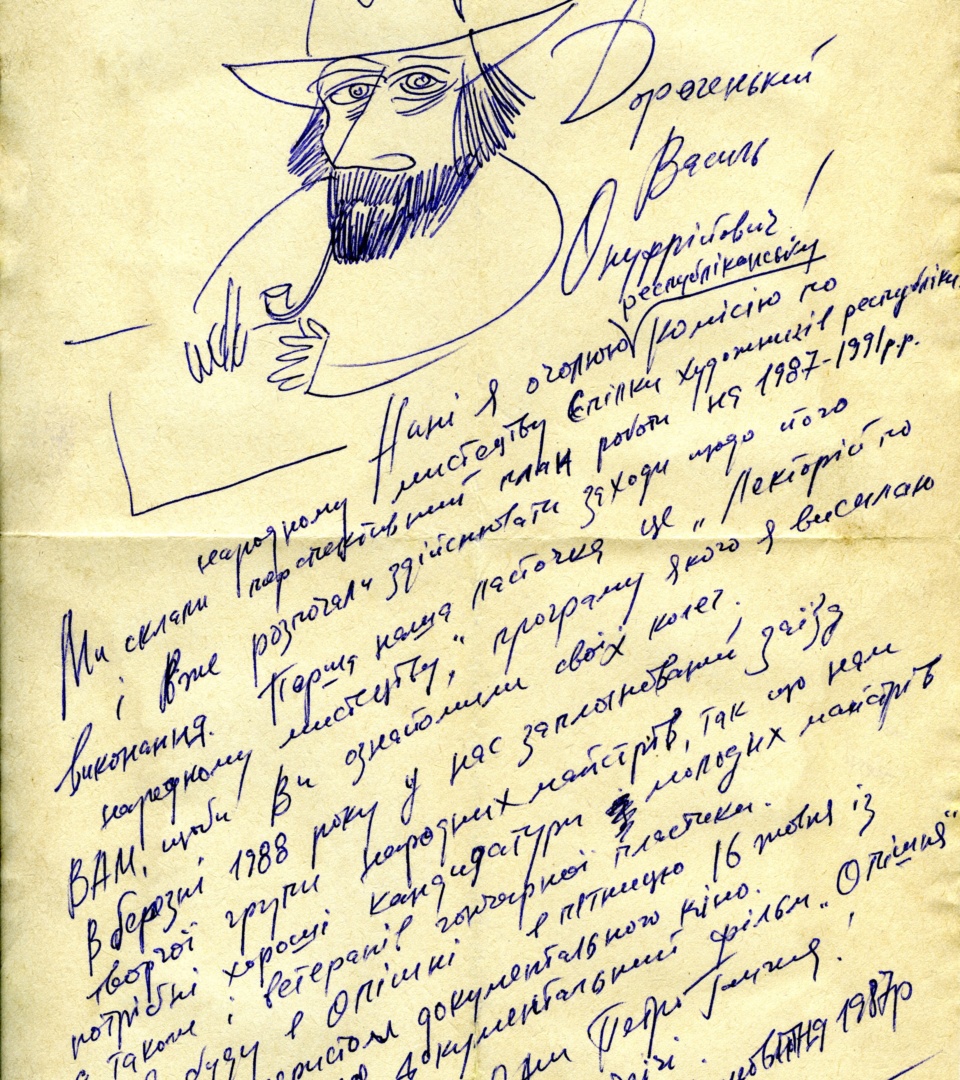 Дорогенький
Василь
Онуфрійович!
республіканську
Нині я очолюю комісію по
народному мистецтву Спілки художників республіки.
Ми склали перспективний план роботи на 1987-1991р.р.
і вже розпочали здійснювати заходи щодо його
виконання. Перша наша ласточка це „Лекторій по
народному мистецтву," програму якого я висилаю
ВАМ, щоби Ви ознайомили своїх колег.
В березні 1988 року у нас запланований заїзд
творчої групи народних майстрів, так що нам
потрібні хороші кандидатури молодих майстрів
а також і ветеранів гончарної пластики.
буду в Опішні в пʼятницю 16 жовтня із
документального кіно.
документальний фільм „Опішня"
Петро Ганжа!
жовтня 1987р